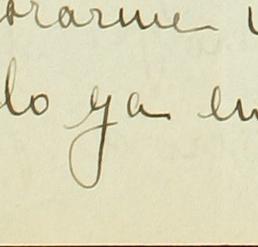 orarme
lo ya en